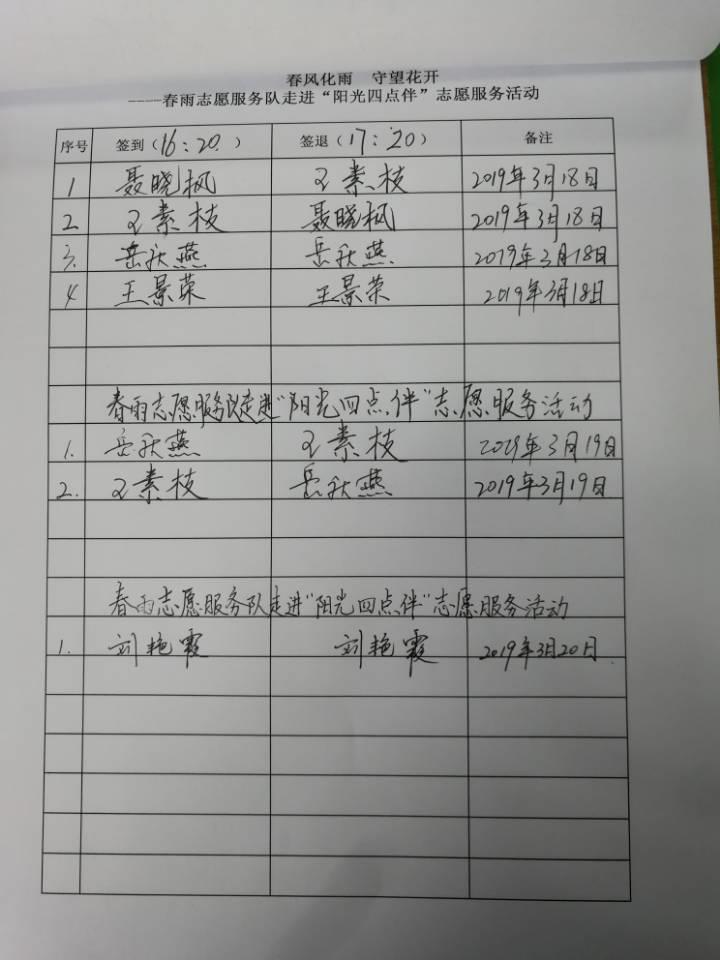 春风化雨 守望花开
----春雨志愿服务队走进“阳光四点伴”志愿服务活动
序号 签到(16:20) 签退(17:20) 备注
1 聂晓枫 王素枝 2019年3月18日
2. 王素枝 聂晓枫 2019年3月18日
3. 岳秋燕 岳秋燕 2019年3月18日
4 王景荣 王景荣 2019年3月18日
春雨志愿服务队走进“阳光四点伴”志愿服务活动
1. 岳秋燕 王素枝 2019年3月19日
2. 王素枝 岳秋燕 2019年3月19日
春雨志愿服务队走进“阳光四点伴”志愿服务活动
1. 刘艳霞 刘艳霞 2019年3月20日